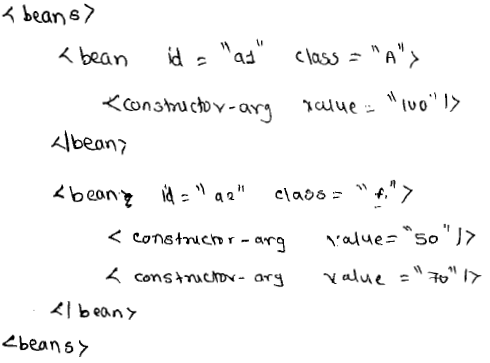 <beans>
<bean id = "a1" class = "A">
<constructor-arg value = "100" />
</bean>
<bean id = "a2" class = "A">
<constructor-arg value = "50" />
<constructor-arg value = "70" />
</bean>
<beans>